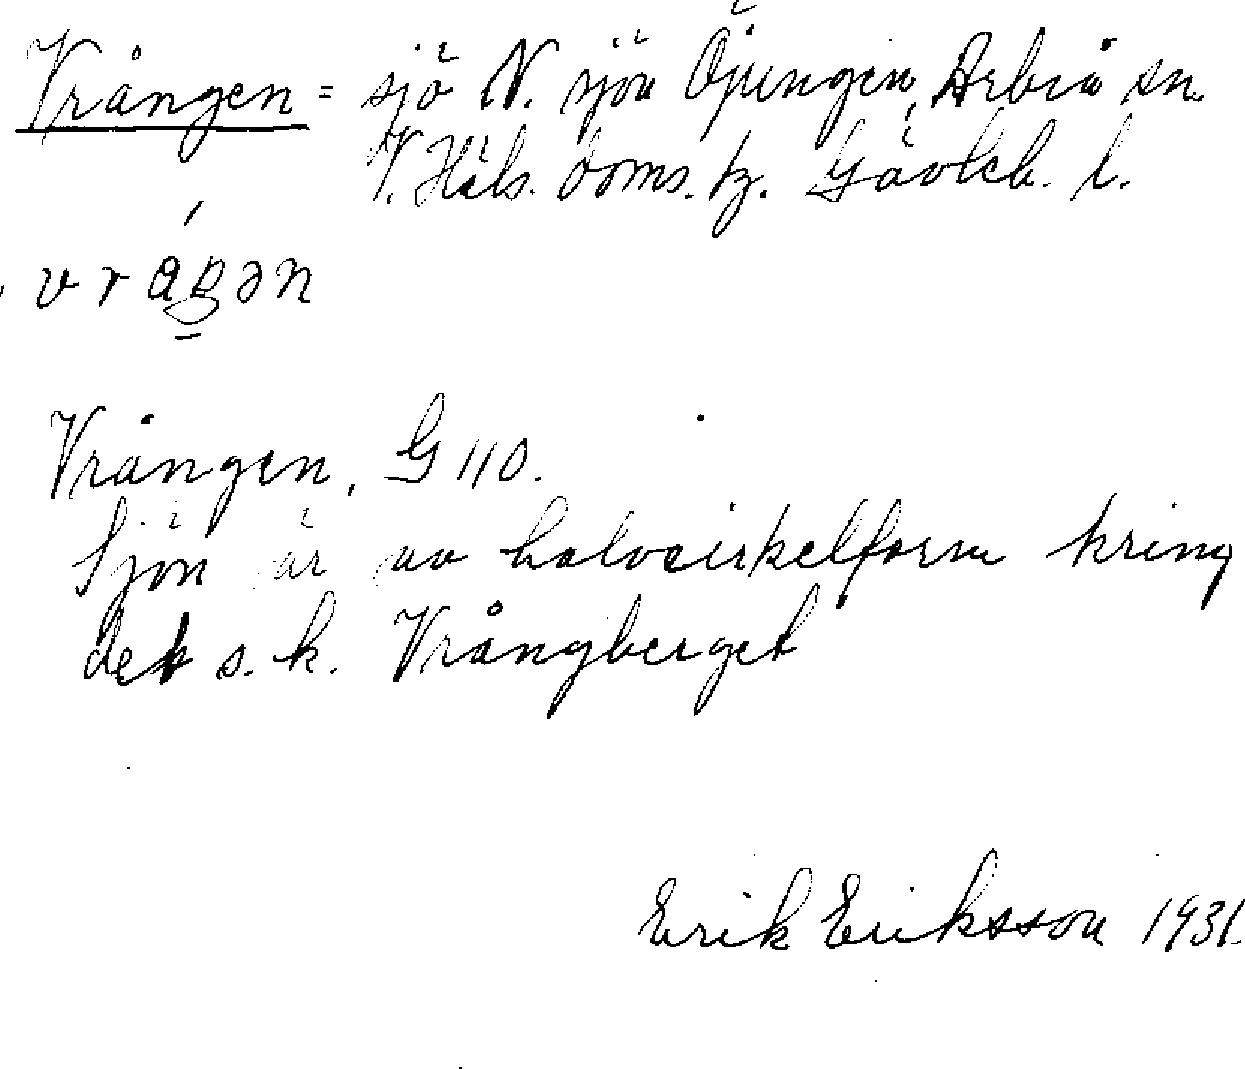 Vrången = sjö N. sjön Öjungen, Arbrå sn.
V. Häls. doms. tz. Gävleb. l.
Vrången, G 110.
Sjön är av halvcirkelform kring
det s.k. Vrångberget
Erik Eriksson 1931.